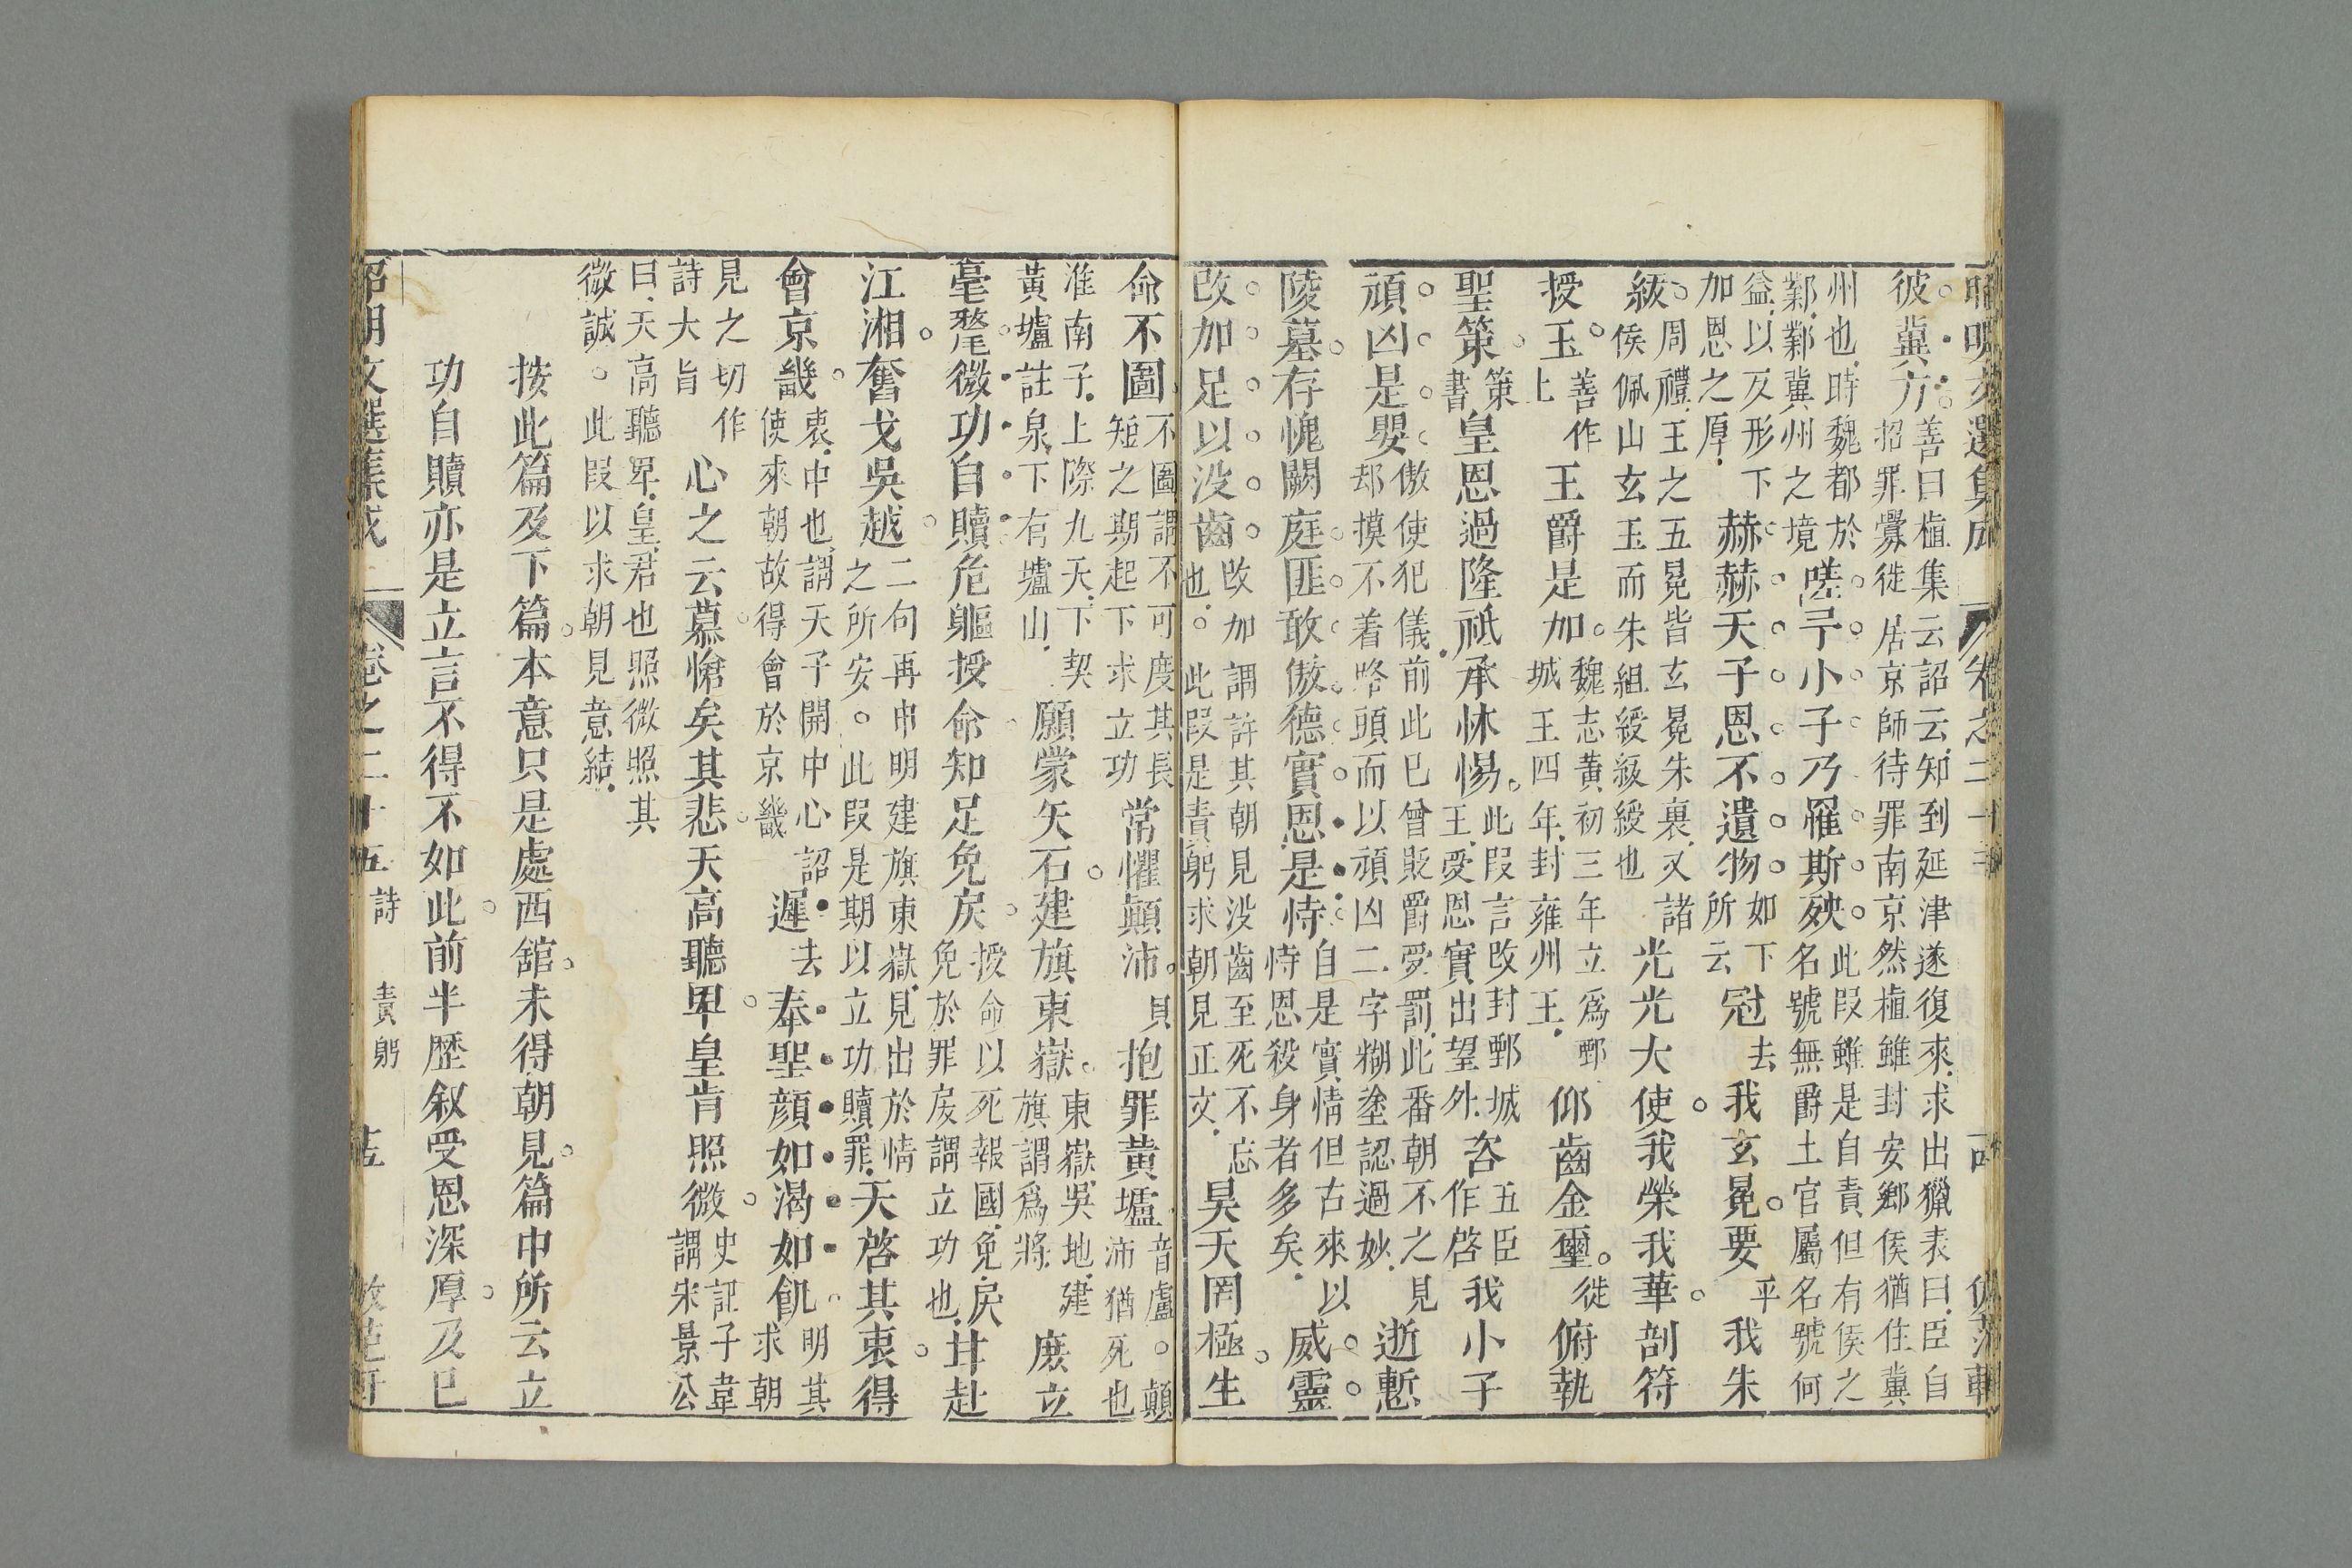 彼冀方善曰植集云詔云知到延津遂復來求出獵表曰臣自
招罪釁徙居京師待罪南京然植雖封安鄉侯猶住冀
州也時魏都於
鄴鄴冀州之境嗟予小子乃罹斯殃此叚雖是自責但有侯之
名號無爵土官屬名號何
益以反形下
加恩之厚赫赫天子恩不遺物如下
所云冠去我玄冕要平我朱
紱周禮王之五冕皆玄冕朱裏又諸
侯佩山玄玉而朱組綬紱綬也光光大使我榮我華剖符
授玉善作
上王爵是加魏志黃初三年立爲鄄
城王四年封雍州王仰齒金璽徙俯執
聖策策
書皇恩過隆祇承怵惕此叚言改封鄄城
王受恩實出望外咨五臣
作啓我小子
頑凶是嬰傲使犯儀前此已曾貶爵受罰此番朝不之見
却摸不着路頭而以頑凶二字糊塗認過妙逝慙
陵墓存愧闕庭匪敢傲德實恩是恃自是實情但古來以
恃恩殺身者多矣威靈
改加足以没齒改加謂許其朝見没齒至死不忘
也。此叚是責躬求朝見正文昊天罔極生
命不圖不圖謂不可度其長
短之期起下求立功常懼顛沛貝抱罪黃壚音盧。顛
沛猶死也
淮南子上際九天下契
黃壚註泉下有壚山願蒙矢石建旗東嶽東嶽吳地建
旗謂爲將庶立
毫氂微功自贖危軀授命知足免戾授命以死報國免戾
免於罪戾謂立功也甘赴
江湘奮戈吳越二句再申明建旗東嶽見出於情
之所安。此叚是期以立功贖罪天啓其衷得
會京畿衷中也謂天子開中心詔
使來朝故得會於京畿遲去奉聖顔如渴如飢明其
求朝
見之切作
詩大旨心之云慕愴矣其悲天高聽卑皇肯照微史記子韋
謂宋景公
曰天高聽卑皇君也照微照其
微誠。此叚以求朝見意結
按此篇及下篇本意只是處西舘未得朝見篇中所云立
功自贖亦是立言不得不如此前半歷叙受恩深厚及巳
昭明文選集成 卷之二十五 詩 責躬